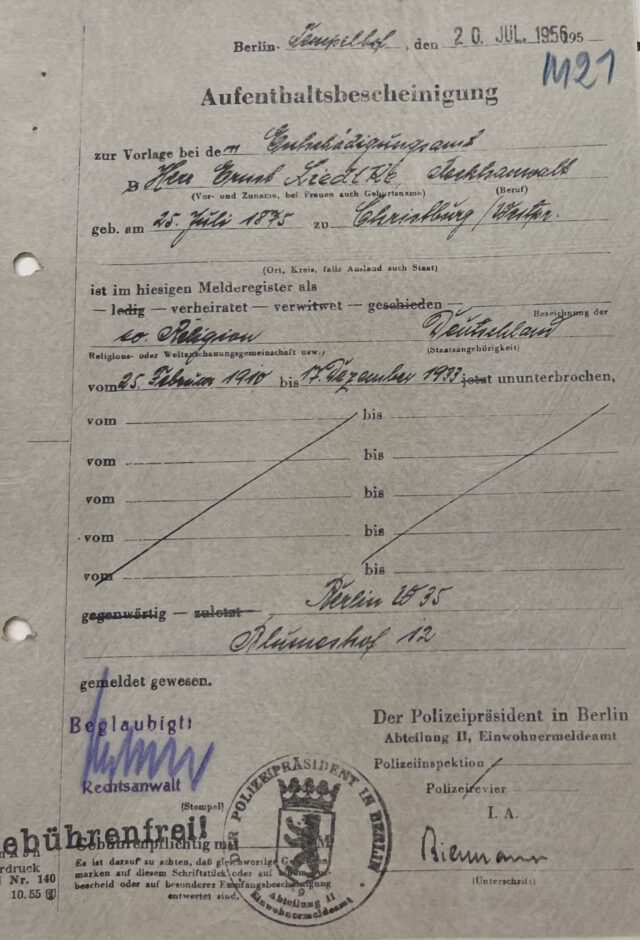 Berlin- Tempelhof, den 20. JUL. 1956 195
M21
Aufenthaltsbescheinigung
zur Vorlage bei dem Entschädigungsamt
Herr Ernst Rechtsanwalt
(Vor- und Zuname, bei Frauen auch Geburtsname) (Beruf)
geb. am 25. Juli 1875 zu Christburg/Westpr.
(Ort, Kreis, falls Ausland auch Staat)
ist im hiesigen Melderegister als
— ledig — verheiratet — verwitwet — geschieden —
Bezeichnung der
ev. Religion Deutschland
Religions- oder Weltanschauungsgemeinschaft usw.) (Staatsangehörigkeit)
vom 25. Februar 1910 bis 17. Dezember 1933 jetzt ununterbrochen,
vom bis
vom bis
vom bis
vom bis
vom bis
gegenwärtig — zuletzt — Berlin W 35
Blumeshof 12
gemeldet gewesen.
Beglaubigt:
Rechtsanwalt
Der Polizeipräsident in Berlin
Abteilung II, Einwohnermeldeamt
Polizeiinspektion
Polizeirevier
I. A.
Biermann
(Unterschrift)
(Stempel)
DER POLIZEIPRÄSIDENT IN BERLIN
9
Abteilung II
Einwohnermeldeamt
ebührenfrei!
Gebührenpflichtig mit M
Es ist darauf zu achten, daß gleichwertige
marken auf diesem Schriftstück oder auf
bescheid oder auf besonderer Empfangsbescheinigung
entwertet sind.
rdruck
Nr. 140
10.55